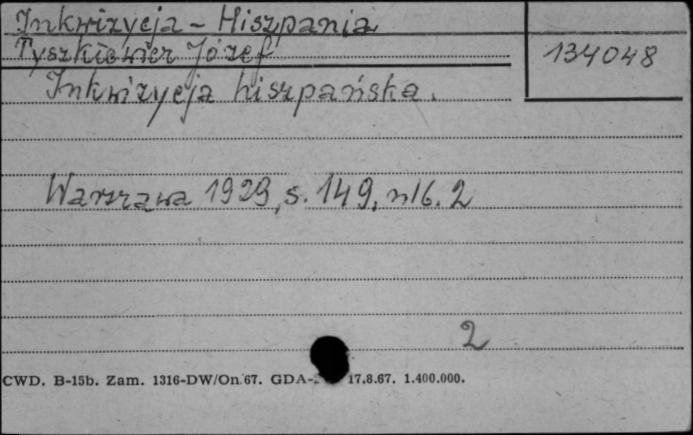 Inkwizycja - Hiszpania
Tyszkiewicz Józef
134048
Inkwizycja hiszpańska.
Warszawa 1929, s. 149, nlb. 2
2
CWD. B-15b. Zam. 1316-DW/On.67. GDA- 17.8.67. 1.400.000.